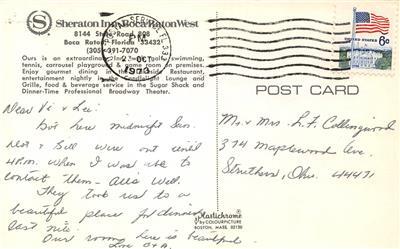 Sheraton Inn, Boca Raton West
8144 State Road 808
Boca Raton, Florida 33432
(305) 391-7070
Ours is an extraordinary swimming,
tennis, carrousel playground & game room on premises.
Enjoy gourmet dining in the Restaurant,
entertainment nightly in the Lounge and
Grille, food & beverage service in the Sugar Shack and
Dinner-Time Professional Broadway Theater.
2 OCT
1973
UNITED STATES
6c
POST CARD
Dear Vi & Lee:
Got here midnight Sun.
& Bill were out until
4 P.M. When I was able to
contact them - All's Well.
They took us to a
beautiful place for dinner
last nite.
Our room here is beautiful
Love
Plastichrome
BY COLOURPICTURE
BOSTON, MASS. 02130
Mr. & Mrs. L. F. Collingwood
374 Maplewood Ave.
Struthers, Ohio 44471